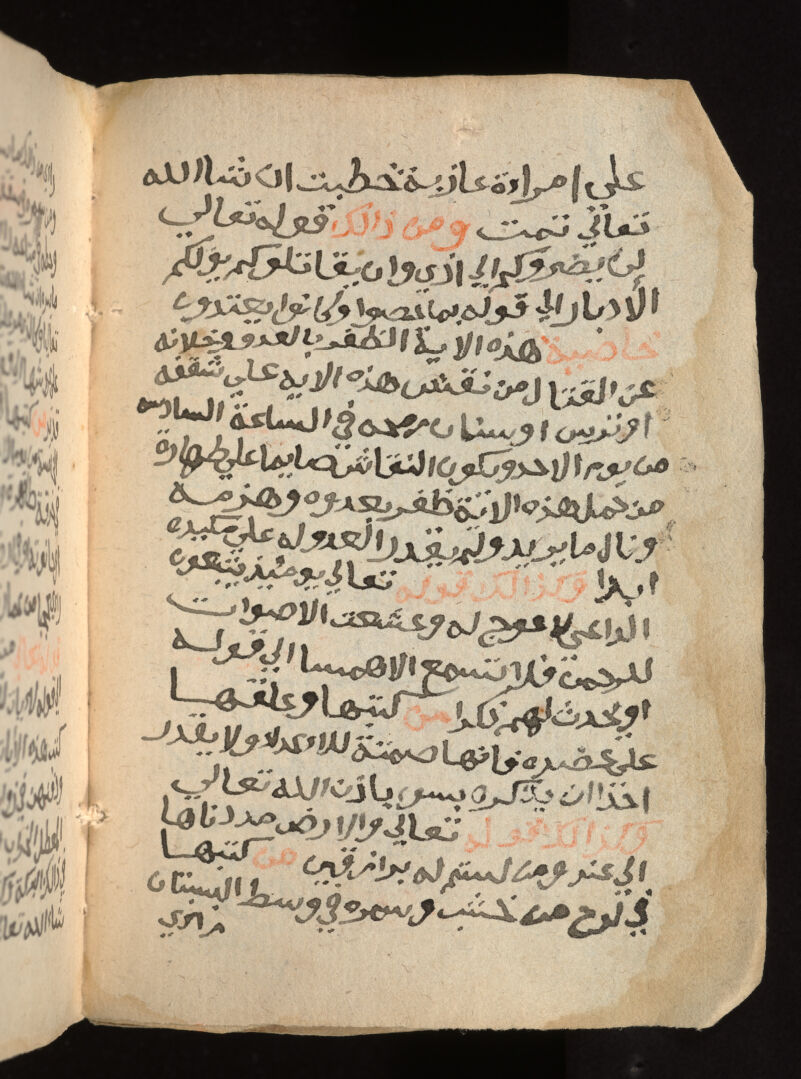 علي امراءة عازبة خطبت ان شاالله
تعالي تمت ومن ذالك قوله تعالي
لن يضروكم الي اذي وان يقاتلوكم يولكم
الأدبار الي قوله بما عصوا وكانوا يعتدون
خاصية هذه الاية الظفر بالعدو وخذلانه
عن القتال من نقش هذه الاية علي شقفه
او ترس او سنان رمحه في الساعة السادس
من يوم الاحد ويكون النقاش صايما علي طهارة
من حمل هذه الاية ظفر بعدوه وهزمه
ونال ما يريد ولم يقدر العدو له علي مكيده
ابدا وكذالك قوله تعالي يوميذ يتبعون
الداعي لا عوج له وخشعت الاصوات
للرحمن فلا تسمع الا همسا الي قوله
او يحدث لهم ذكرا من كتبها وعلقها
علي عضده فانها صمتة للاعدا ولا يقدر
احذا ان يذكره بسو باذن الله تعالي
وكذالك قوله تعالي والارض مددناها
الي عند ومن لستم له برازقين من كتبها
في لوح من خشب وسمره في وسط البستان